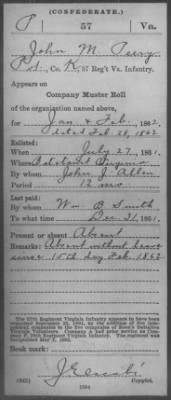 (CONFEDERATE.)
P 57 Va.
John M. Perry
Pvt., Co. K, 57 Reg't Va. Infantry.
Appears on
Company Muster Roll
of the organization named above,
for Jan & Feb, 1862.
dated Feb 28, 1862
Enlisted:
When July 27, 1861.
Where Virginia
By whom John J. Allen
Period 12 mo
Last paid:
By whom Wm B Smith
To what time Dec 31, 1861.
Present or absent Absent
Remarks: Absent without leave
since 15th day Feb. 1862
The 57th Regiment Virginia Infantry appears to have been
Book mark:
Copyist.